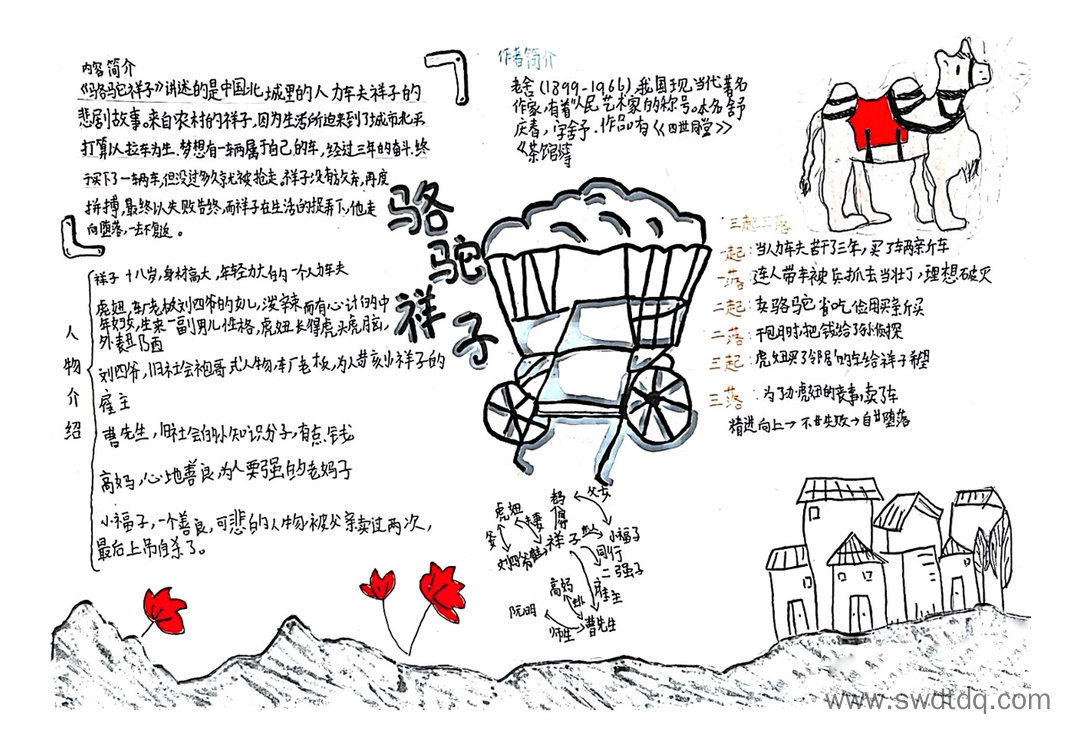 内容简介
《骆驼祥子》讲述的是中国北城里的人力车夫祥子的
悲剧故事。来自农村的祥子,因为生活所迫来到了城市北平
打算以拉车为生.梦想有一辆属于自己的车,经过三年的奋斗.终
于买下了一辆车,但没过多久就被抢走.祥子没有放弃,再度
拼搏,最终以失败告终,而祥子在生活的捉弄下,他走
向堕落,一去不复返。
作者简介
老舍(1899-1966),我国现当代著名
作家,有着"人民艺术家"的称号。本名舒
庆春,字舍予.作品有《四世同堂》
《茶馆》等
骆驼祥子
人物介绍
祥子 十八岁,身材高大,年轻力大的一个人力车夫
虎妞,车厂老板刘四爷的女儿,泼辣而有心计的中
年妇女,生来一副男儿性格,虎妞长得虎头虎脑,
外表丑陋
刘四爷,旧社会袍哥式人物.车厂老板,为人苛刻,祥子的
雇主
曹先生,旧社会的小知识分子,有点钱
高妈,心地善良,为人要强的老妈子
小福子,一个善良,可悲的人物,被父亲卖过两次,
最后上吊自杀了。
三起三落
一起:当人力车夫苦干了三年,买了车辆新车
一落:连人带车被兵抓去当壮丁,理想破灭
二起:卖骆驼 省吃俭用买新买
二落:干包月时,把钱给了孙侦探
三起:虎妞买了邻居的车给祥子
三落:为了办虎妞的丧事,卖了车
精进向上→不甘失败→自甘堕落
虎妞
父女
夫妻
祥子
小福子
刘四爷
同行
二强子
高妈
雇主
阮明
师生
曹先生
www.swdtdq.com